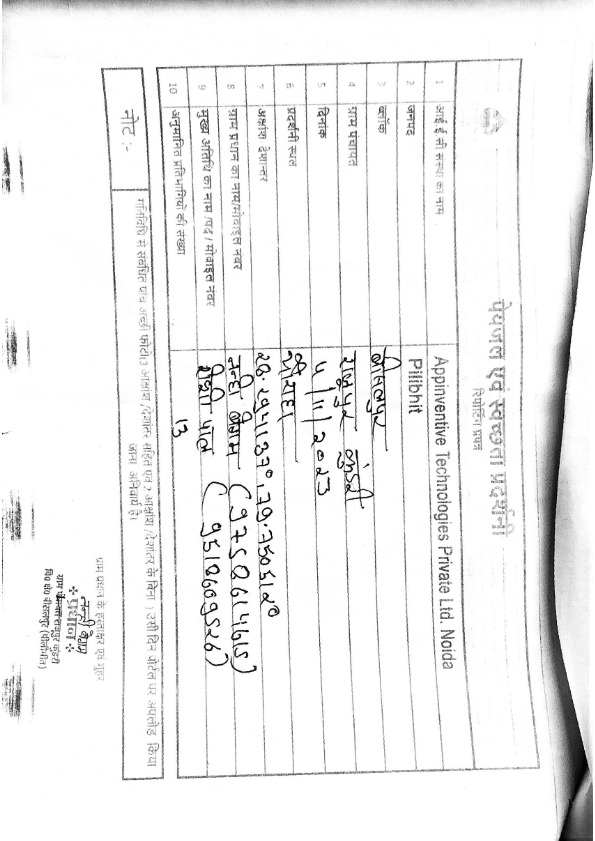 पेयजल एवं स्वच्छता प्रदर्शनी
रिपोर्टिंग प्रपत्र
1 आई ई सी संस्था का नाम Appinventive Technologies Private Ltd. Noida
2 जनपद Pilibhit
3 ब्लॉक बीसलपुर
4 ग्राम पंचायत रामपुर कुंडरी
5 दिनांक 5/11/2023
6 प्रदर्शनी स्थल चौराहा
7 अक्षांश देशान्तर
8 ग्राम प्रधान का नाम/मोबाइल नंबर नन्ही बेगम (9758614615)
9 मुख्य अतिथि का नाम /पद / मोबाइल नंबर पाल (9512609526)
10 अनुमानित प्रतिभागियों की संख्या 13
नोट :- गतिविधि से संबंधित पांच अच्छी फोटो(3 अक्षांश /देशांतर सहित एवं 2 अक्षांश /देशांतर के बिना ) उसी दिन पोर्टल पर अपलोड किया
जाना अनिवार्य है।
ग्राम प्रधान के हस्ताक्षर एवं मुहर
नन्ही बेगम
प्रधान
ग्राम पंचायत रामपुर कुंडरी
वि० क्षे० बीसलपुर (पीलीभीत)